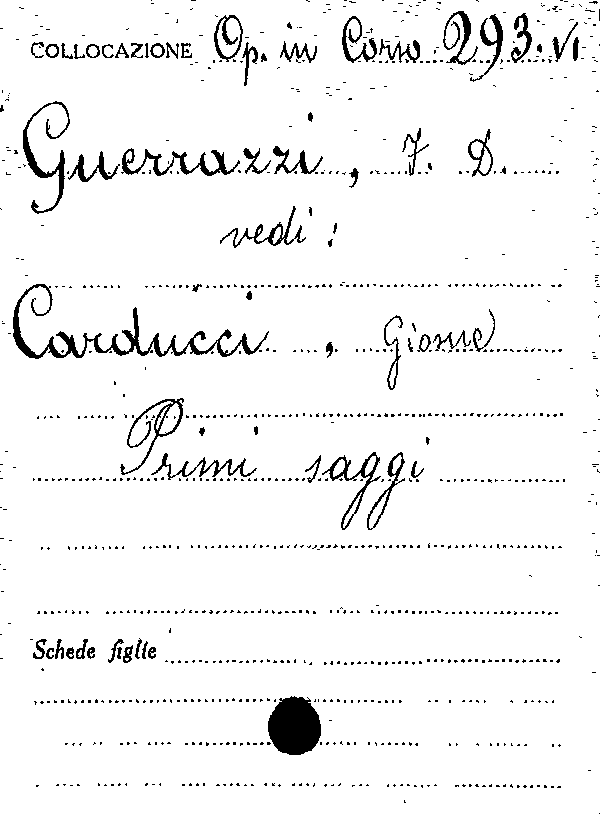 COLLOCAZIONE Op. in Corso 293. VI
Guerrazzi, F. D.
vedi:
Carducci, Giosuè
Primi saggi
Schede figlie